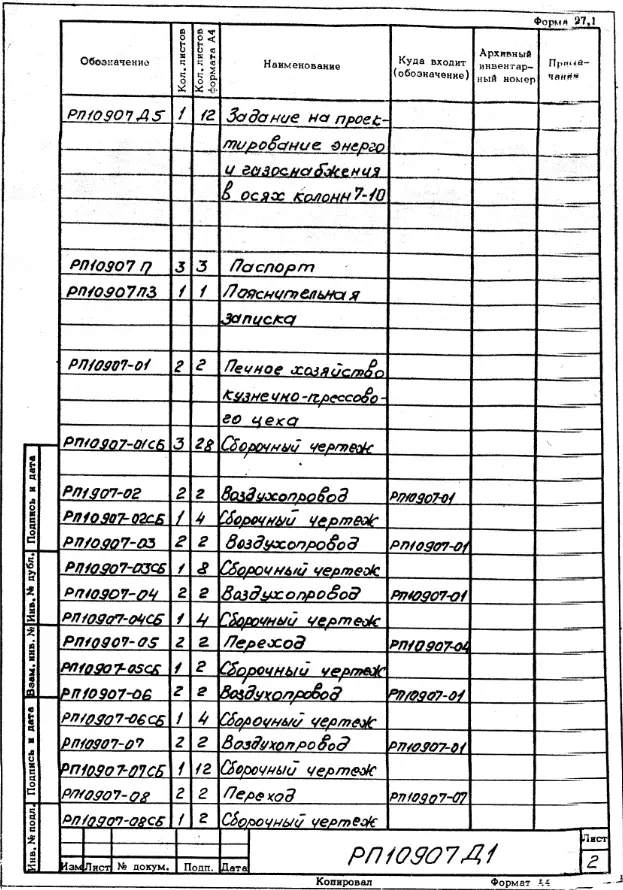 Форма 27,1
Обозначение Кол. листов Кол. листов формата А4 Наименование Куда входит (обозначение) Архивный инвентарный номер Примечания
РП10907Д5 1 12 Задание на проек-
тирование энерго
и газоснабжения
в осях колонн 7-10
РП10907 П 3 3 Паспорт
РП10907ПЗ 1 1 Пояснительная
записка
РП10907-01 2 2 Печное хозяйство
кузнечно-прессово-
го цеха
РП10907-01СБ 3 28 Сборочный чертеж
РП1907-02 2 2 Воздухопровод РП10907-01
РП10907-02СБ 1 4 Сборочный чертеж
РП10907-03 2 2 Воздухопровод РП10907-01
РП10907-03СБ 1 8 Сборочный чертеж
РП10907-04 2 2 Воздухопровод РП10907-01
РП10907-04СБ 1 4 Сборочный чертеж
РП10907-05 2 2 Переход РП10907-04
РП10907-05СБ 1 2 Сборочный чертеж
РП10907-06 2 2 Воздухопровод РП10907-01
РП10907-06СБ 1 4 Сборочный чертеж
РП10907-07 2 2 Воздухопровод РП10907-01
РП10907-07СБ 1 12 Сборочный чертеж
РП10907-08 2 2 Переход РП10907-07
РП10907-08СБ 1 2 Сборочный чертеж
Инв. № подл. Подпись и дата Взам. инв. № Инв. № дубл. Подпись и дата
Изм Лист № докум. Подп. Дата
РП10907Д1
Лист
2
Копировал Формат А4